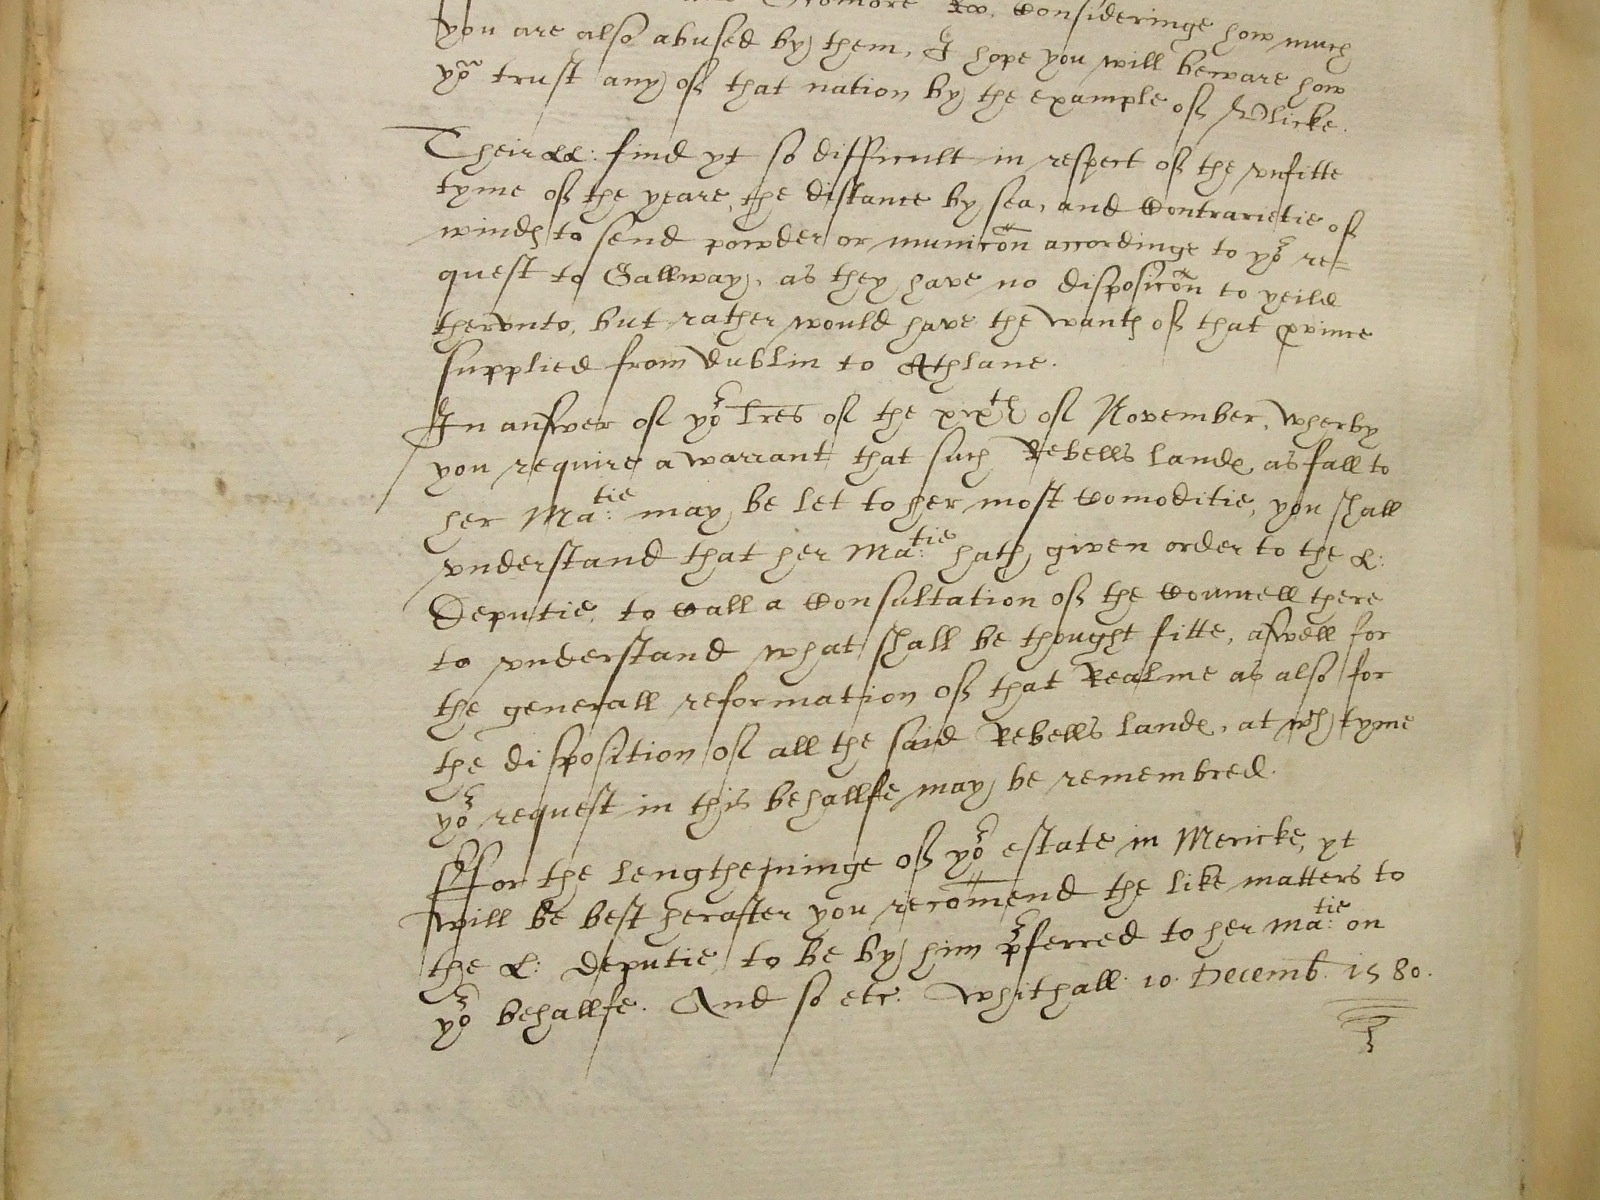 Consideringe how much
you are also abused by them, I hope you will beware how
yoᵘ trust any of that nation by the example of Vlicke.
Their LL: find yt so difficult in respect of the vnfitte
tyme of the yeare, the distance by sea, and Contrarietie of
windes to send powder or municōn accordinge to yoʳ re=
quest to Gallway, as they have no disposicōn to yeild
thervnto, but rather would have the wantes of that prince
supplied from Dublin to Athlane.
In answer of yoʳ lres of the xixᵗʰ of November, wherby
you require a warrant that such Rebells landes as fall to
her Maᵗⁱᵉ: may be let to her most Comoditie, you shall
vnderstand that her Maᵗⁱᵉ: hath given order to the L:
Deputie, to Call a Consultation of the Councell there
to vnderstand what shall be thought fitte, aswell for
the generall reformation of that Realme as also for
the disposition of all the said Rebells landes, at wᶜʰ tyme
yoʳ request in this behallfe may be remembred.
Ffor the lengtheninge of yoʳ estate in Mericke, yt
will be best herafter you recom̄end the like matters to
the L: deputie, to be by him pʳferred to her Maᵗⁱᵉ: on
yoʳ behallfe. And so etc. Whithall. 10. Decemb. 1580.